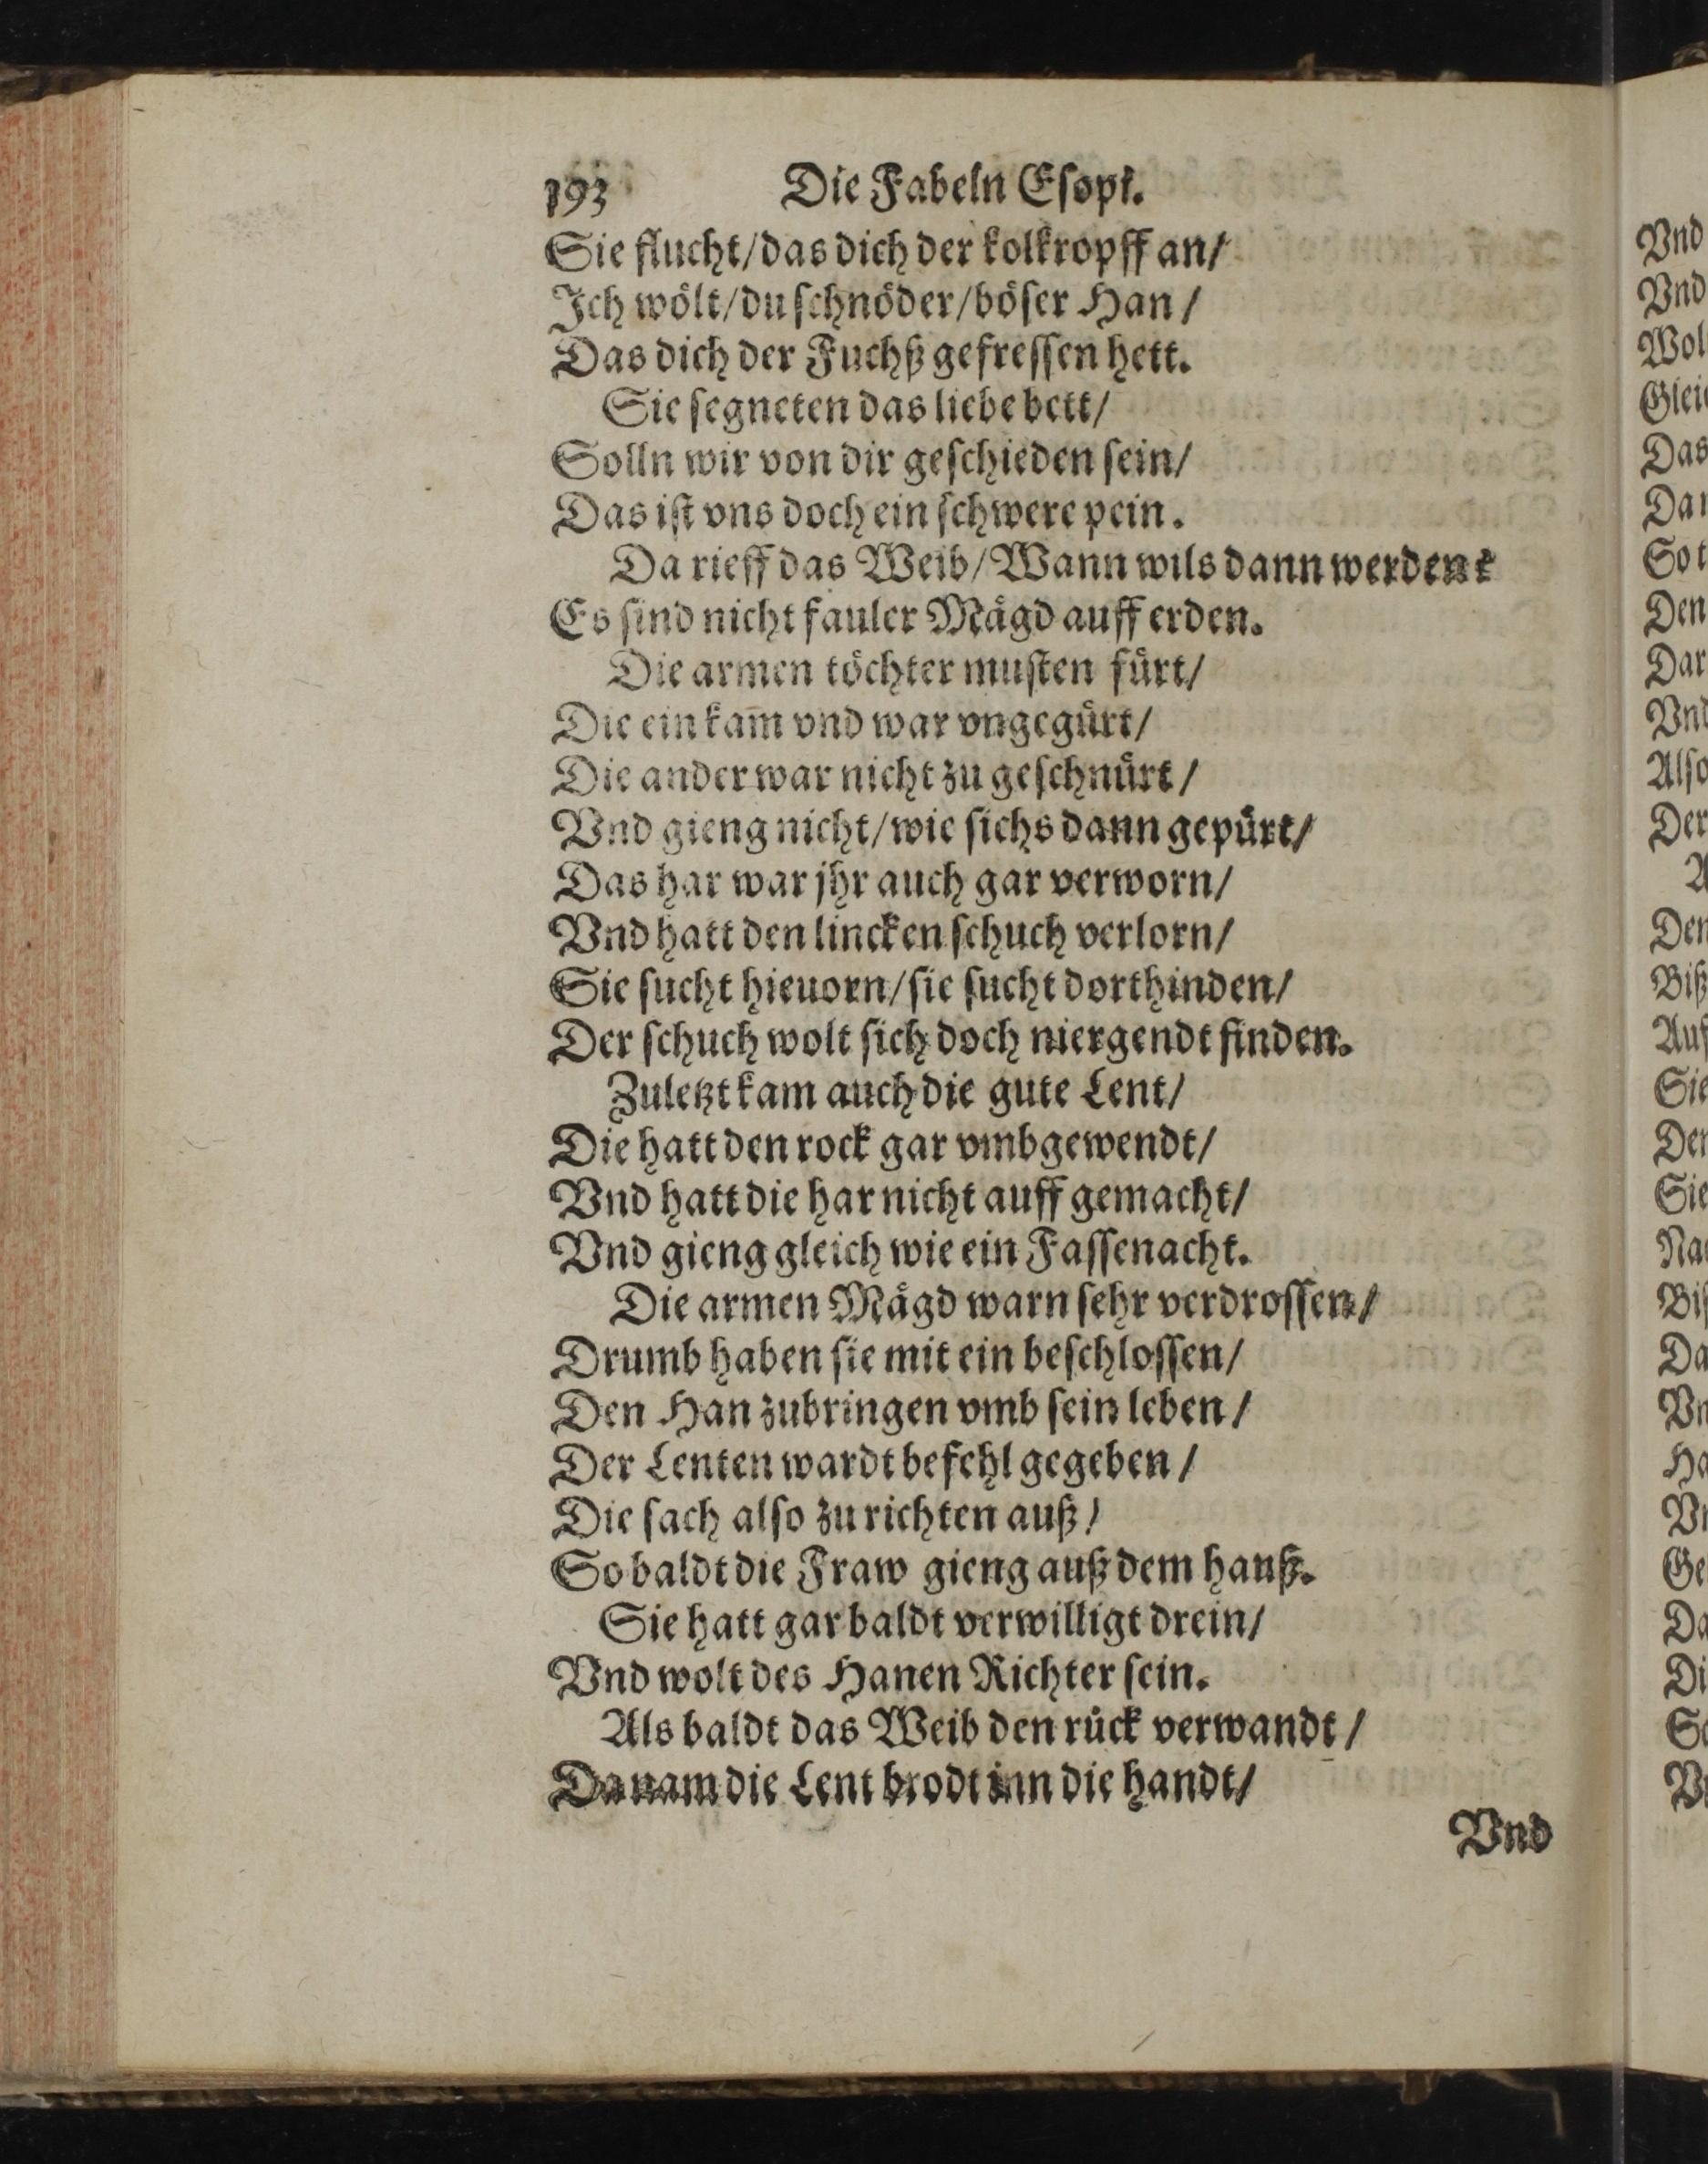 193 Die Fabeln Eſopi.
Sie flucht/das dich der kolkropff an/
Ich wölt/du ſchnöder/böſer Han/
Das dich der Fuchß gefreſſen hett.
Sie ſegneten das liebe bett/
Solln wir von dir geſchieden ſein/
Das iſt vns doch ein ſchwere pein.
Da rieff das Weib/Wann wils dann werden?
Es ſind nicht fauler Mägd auff erden.
Die armen töchter muſten fürt/
Die ein kam̄ vnd war vngegürt/
Die ander war nicht zu geſchnürt/
Vnd gieng nicht/wie ſichs dann gepürt/
Das har war jhr auch gar verworn/
Vnd hatt den lincken ſchuch verlorn/
Sie ſucht hieuorn/ſie ſucht dorthinden/
Der ſchuch wolt ſich doch niergendt finden.
Zuletzt kam auch die gute Lent/
Die hatt den rock gar vmbgewendt/
Vnd hatt die har nicht auff gemacht/
Vnd gieng gleich wie ein Faſſenacht.
Die armen Mägd warn ſehr verdroſſen/
Drumb haben ſie mit ein beſchloſſen/
Den Han zubringen vmb ſein leben/
Der Lenten wardt befehl gegeben/
Die ſach alſo zu richten auß/
So baldt die Fraw gieng auß dem hauß.
Sie hatt gar baldt verwilligt drein/
Vnd wolt des Hanen Richter ſein.
Als baldt das Weib den rück verwandt/
Da nam die Lent brodt inn die handt/
Vnd
Vnd
Vnd
Das
So
Den
Alſo
Der
Den
Biß
Sie
Sie